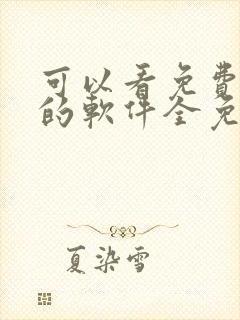 可以看免費
的軟件全免
夏染雪